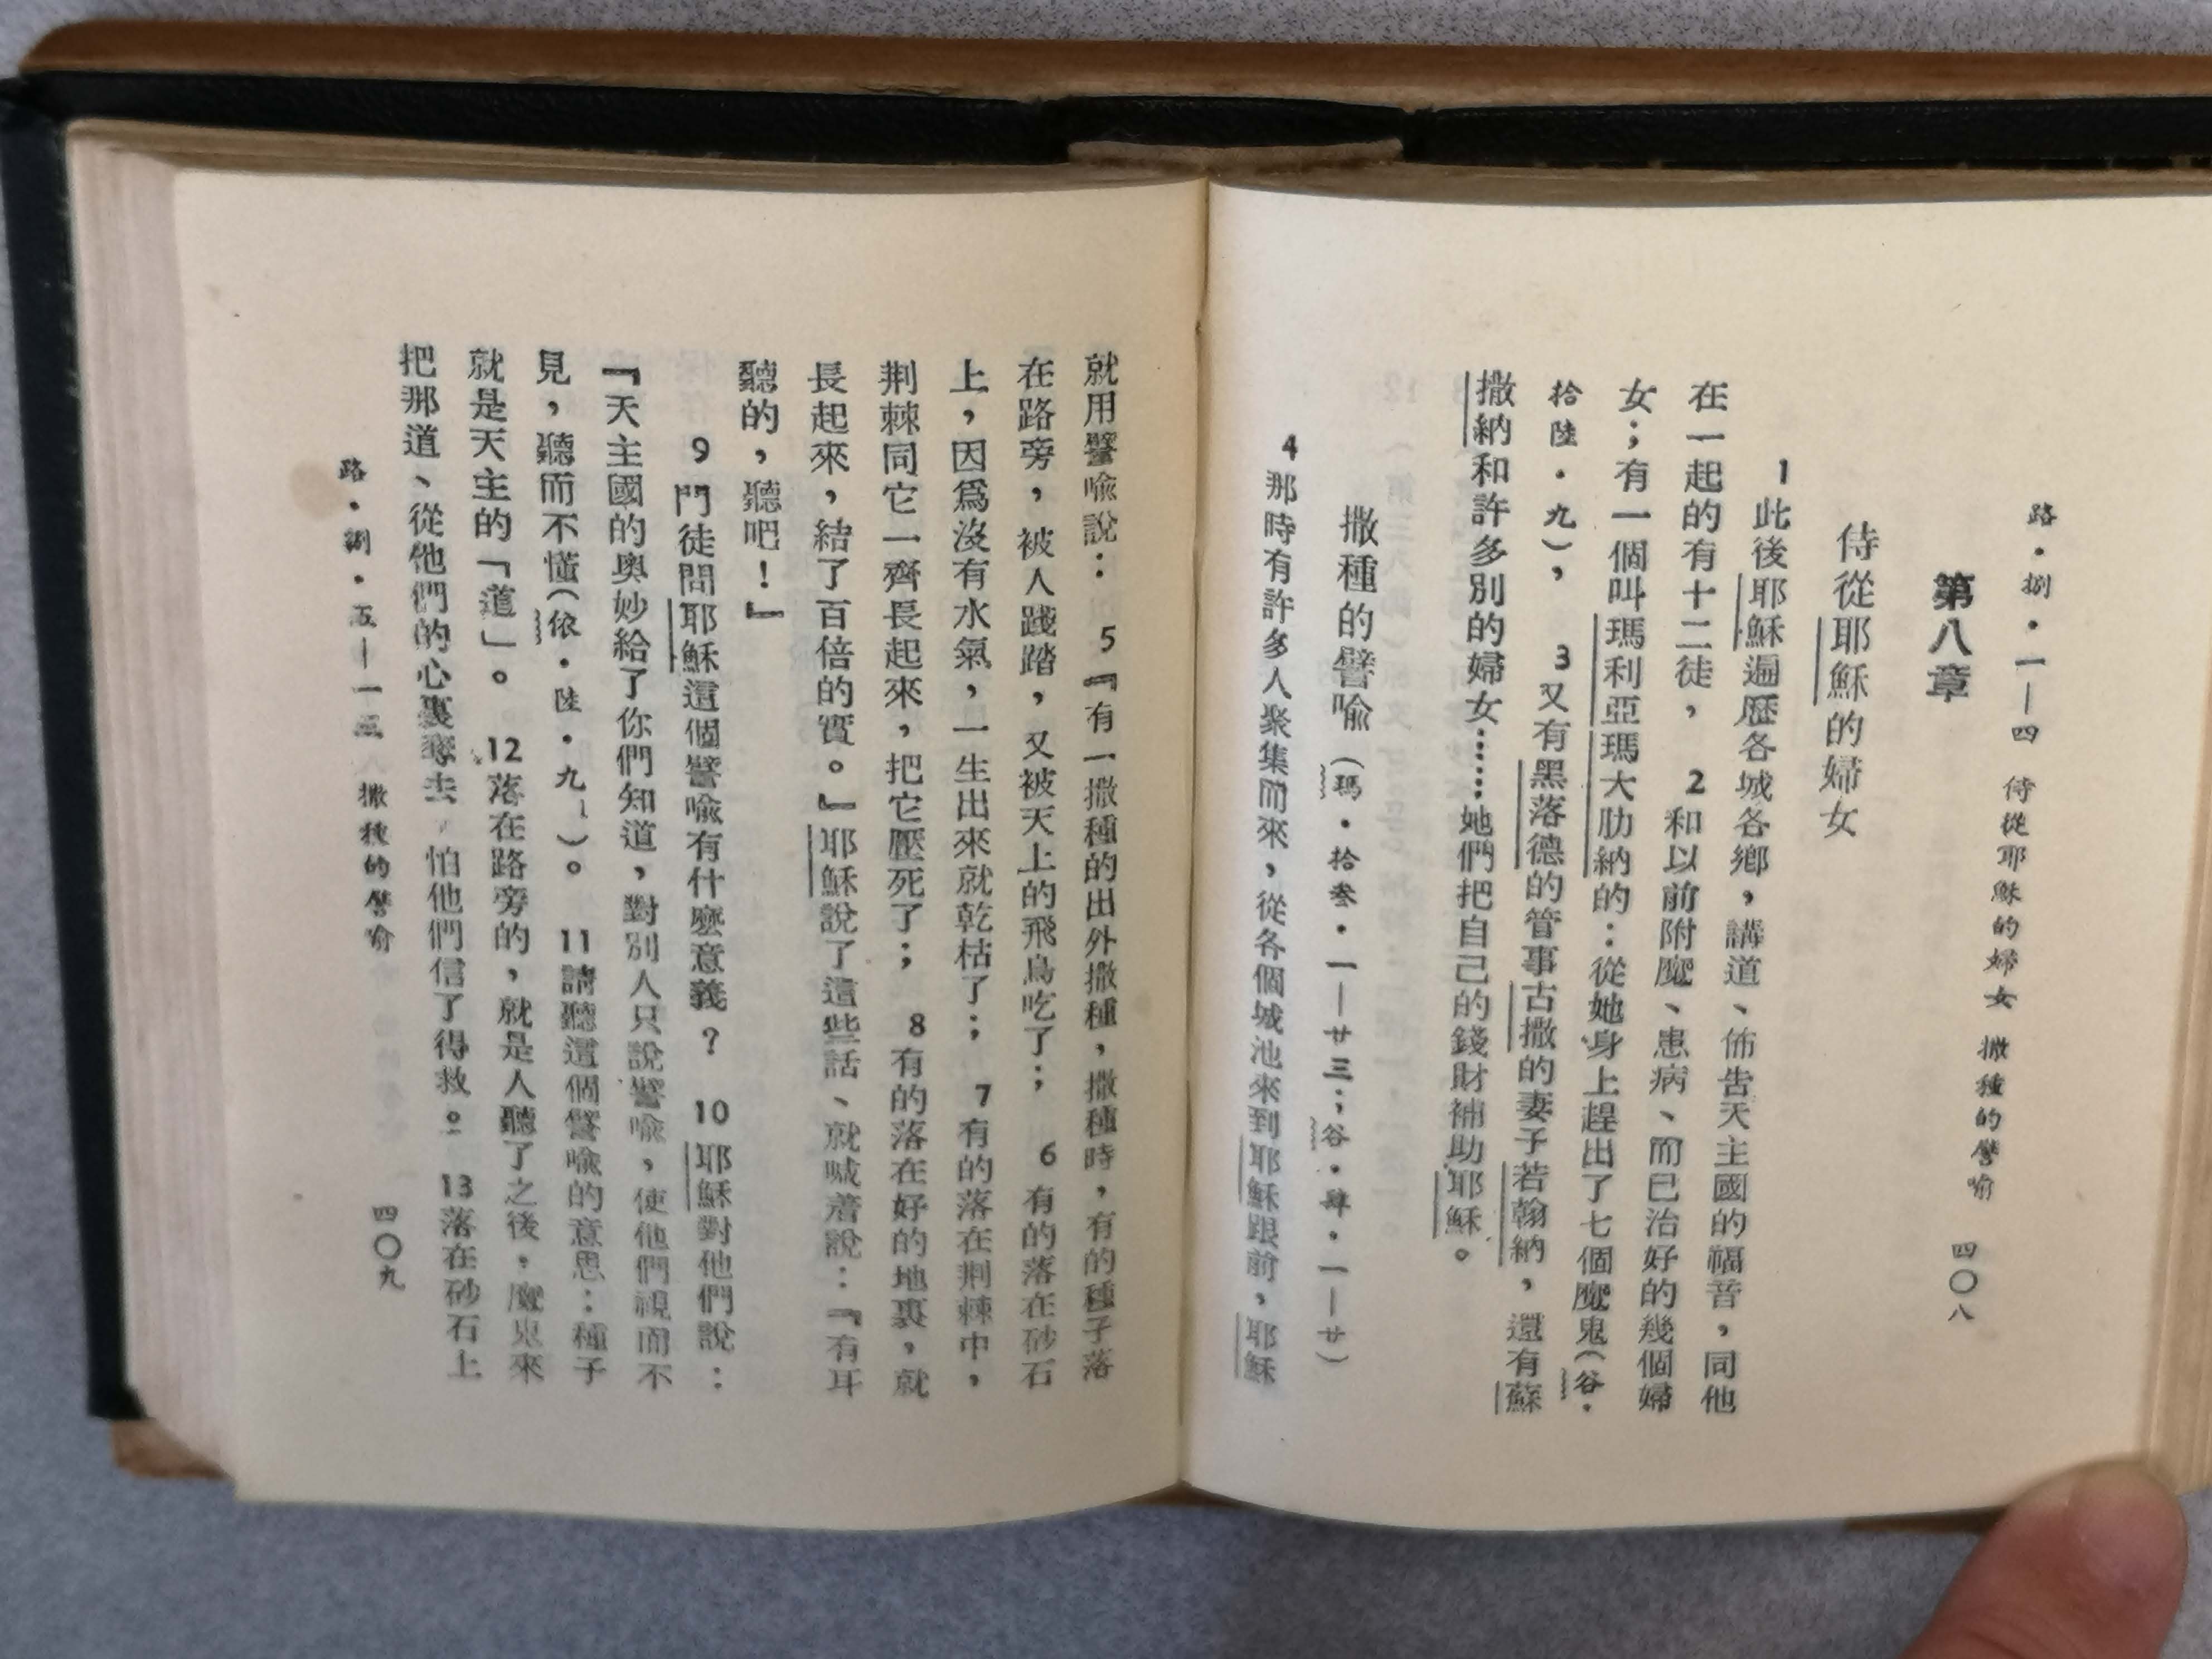 路．捌．一—四　侍從耶穌的婦女　撒種的譬喻　四〇八
第八章
侍從耶穌的婦女
1此後耶穌遍歷各城各鄉，講道、佈告天主國的福音，同他
在一起的有十二徒，　2和以前附魔、患病、而已治好的幾個婦
女；有一個叫瑪利亞瑪大肋納的：從她身上趕出了七個魔鬼（谷．
拾陸．九），　3又有黑落德的管事古撒的妻子若翰納，還有蘇
撒納和許多別的婦女……她們把自己的錢財補助耶穌。
撒種的譬喻（瑪．拾叁．一—廿三；谷．肆．一—廿）
4那時有許多人聚集而來，從各個城池來到耶穌跟前，耶穌
就用譬喻說：　5『有一撒種的出外撒種，撒種時，有的種子落
在路旁，被人踐踏，又被天上的飛鳥吃了；　6有的落在砂石
上，因爲沒有水氣，一生出來就乾枯了；　7有的落在荆棘中，
荆棘同它一齊長起來，把它壓死了；　8有的落在好的地裏，就
長起來，結了百倍的實。』耶穌說了這些話、就喊着說：『有耳
聽的，聽吧！』
9門徒問耶穌這個譬喻有什麼意義？　10耶穌對他們說：
『天主國的奧妙給了你們知道，對別人只說譬喻，使他們視而不
見，聽而不懂（依．陸．九、）。　11請聽這個譬喻的意思：種子
就是天主的「道」。　12落在路旁的，就是人聽了之後，魔鬼來
把那道、從他們的心裏奪去，怕他們信了得救。　13落在砂石上
路．捌．五—一三　撒種的譬喻　四〇九